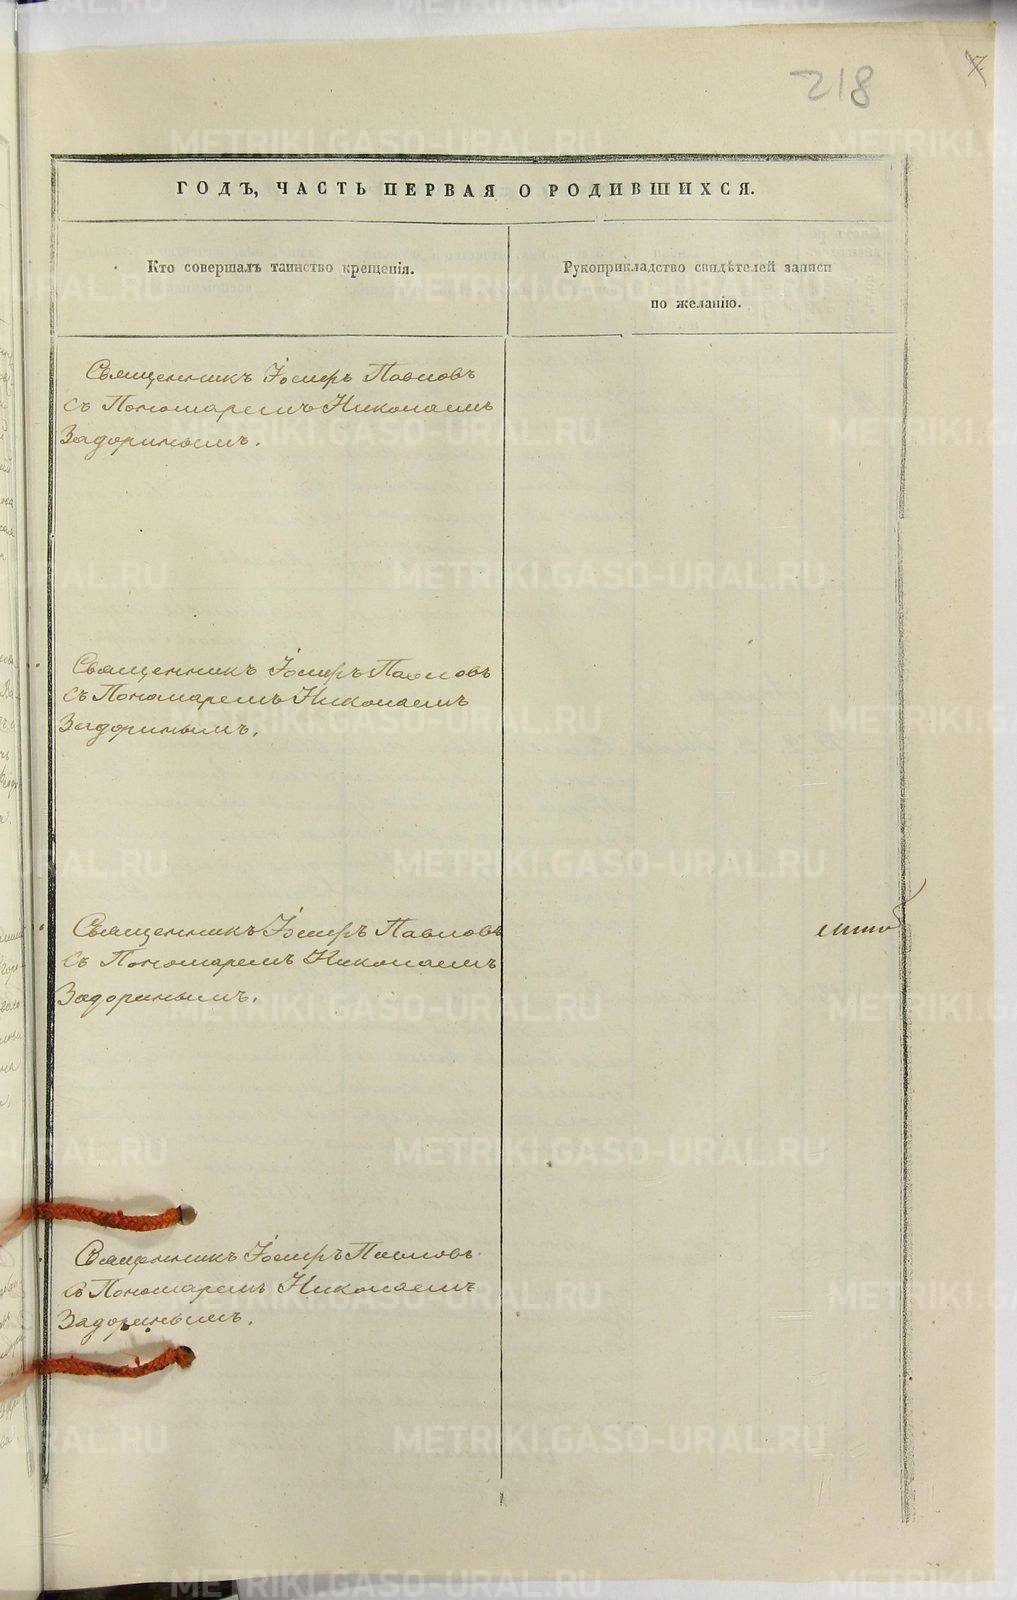 218
7
ГОДЪ, ЧАСТЬ ПЕРВАЯ О РОДИВШИХСЯ.
Кто совершалъ таинство крещенія.
Рукоприкладство свидѣтелей записи
по желанію.
Священникъ Іосифъ Павловъ
съ Пономаремъ Николаемъ
Задоринымъ.
Священникъ Іосифъ Павловъ
съ Пономаремъ Николаемъ
Задоринымъ.
Священникъ Іосифъ Павловъ
съ Пономаремъ Николаемъ
Задоринымъ.
Священникъ Іосифъ Павловъ
съ Пономаремъ Николаемъ
Задоринымъ.
METRIKI.GASO-URAL.RU